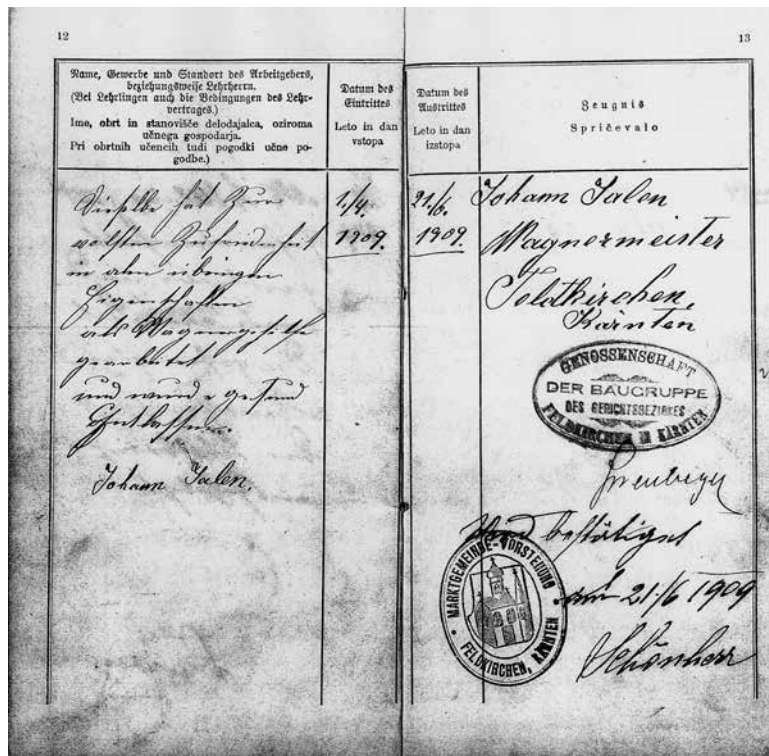 12
Name, Gewerbe und Standort des Arbeitgebers,
beziehungsweise Lehrherrn.
(Bei Lehrlingen auch die Bedingungen des Lehr-
vertrages.)
Ime, obrt in stanovišče delodajalca, oziroma
učnega gospodarja.
Pri obrtnih učencih tudi pogodki učne po-
godbe.)
Datum des
Eintrittes
Leto in dan
vstopa
Dieselbe hat zur
vollsten Zufriedenheit
in allen übrigen
Eigenschaften
als Wagnergehilfe
gearbeitet
und wurde gesund
Entlassen.
Johann Jalen.
1./4.
1909.
13
Datum des
Austrittes
Leto in dan
izstopa
Zeugnis
Spričevalo
21./6.
1909.
Johann Jalen
Wagnermeister
Feldkirchen,
Kärnten
GENOSSENSCHAFT
DER BAUGRUPPE
DES GERICHTSBEZIRKES
FELDKIRCHEN IN KÄRNTEN
Wird bestätiget
am 21./6 1909
MARKTGEMEINDE-VORSTEHUNG
FELDKIRCHEN, KÄRNTEN
Schönherr